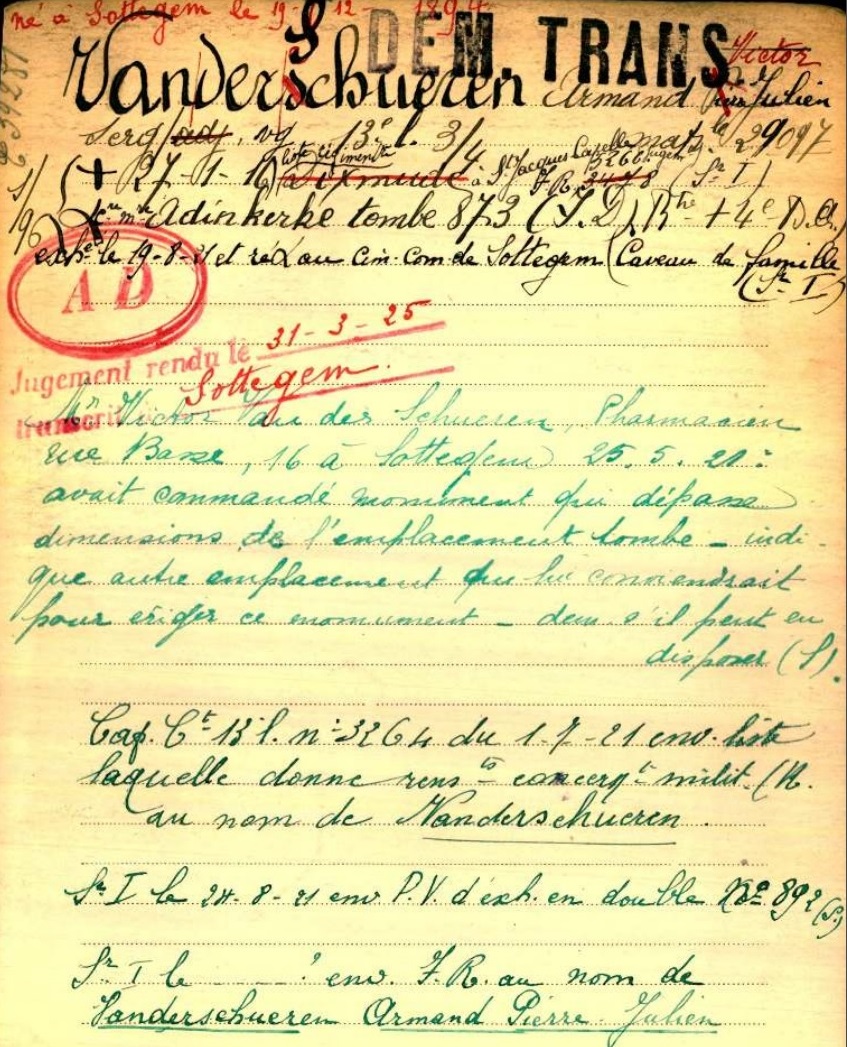 né à Sottegem le 19-12-1894
S DEM. TRANS
Victor
Vanderschueren Armand Julien
Serg/adj. vg 13e l. 3/4 mat. le 29097
(+ 27-1-16) Dixmude à St Jacques Capelle
liste régimentre
F.R. 3478 3266 (Sr I)
1/96
Adinkerke tombe 873 (F.D) Rtre + 4e D.A.
exhé le 19-8-21 et ré au cim com de Sottegem (Caveau de famille
(Sr I)
A D
Jugement rendu le 31-3-25
transcrit Sottegem.
Mr Victor Van der Schueren, Pharmacien
rue Basse, 16 à Sottegem) 25.5.21:
avait commandé monument qui dépasse
dimensions de l'emplacement tombe _ indi-
que autre emplacement qui lui conviendrait
pour ériger ce monument _ dem s'il peut en
disposer (S).
Cap. Ct 13 l. n° 3264 du 1-7-21 env. liste
laquelle donne rensts concernt milit. (R.
au nom de Vanderschueren.
Sr I le 24-8-21 env P.V. d'exh. en double No 892 (S.)
Sr I le env. F.R. au nom de
Vanderschueren Armand Pierre Julien